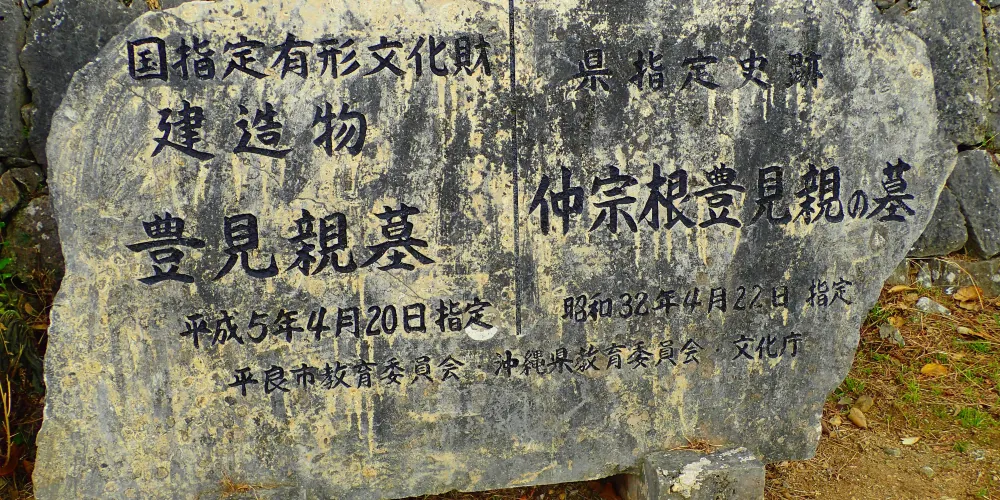 国指定有形文化財
建造物
豊見親墓
平成5年4月20日指定
県指定史跡
仲宗根豊見親の墓
昭和32年4月22日 指定
平良市教育委員会 沖縄県教育委員会 文化庁